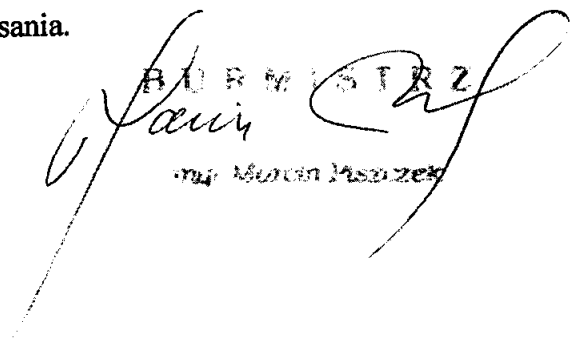 sania.
BURMISTRZ
mgr Marcin Piszczek